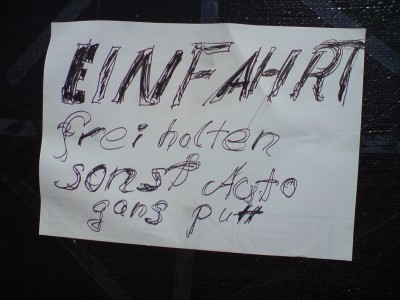 EINFAHRT
frei halten
sonst Auto
gans putt